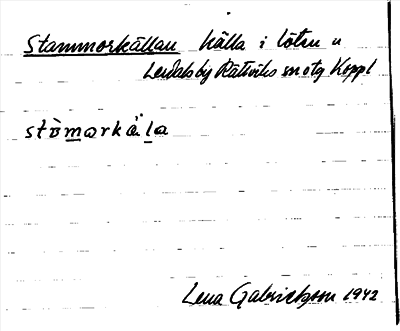 Stammorkällan källa i löten u
Lerdalsby Rättviks sn otg Koppl
stömorkäla
Lena Gabrielsson 1942